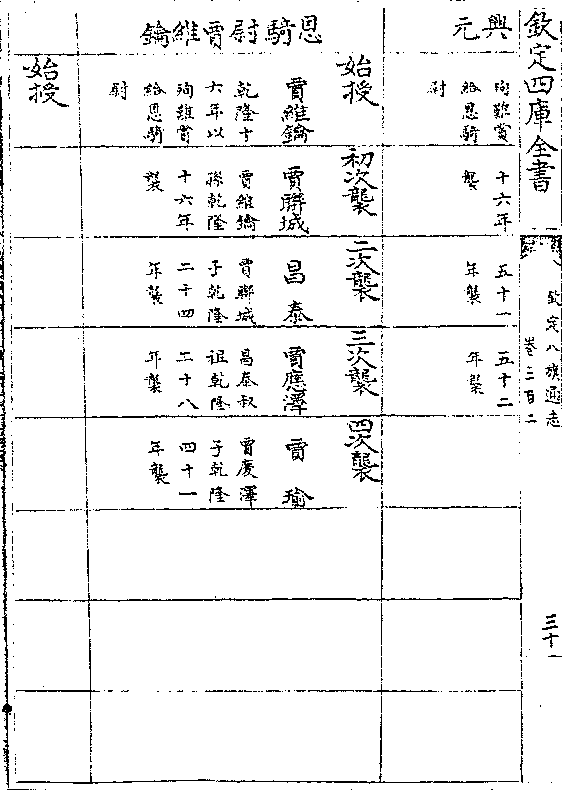 欽定四庫全書
欽定八旗通志
卷三百二
三十一
興元
殉難賞
給恩騎
尉
十六年
襲
五十一
年襲
五十二
年襲
恩騎尉賈維鑰
始授
賈維鑰
乾隆十
六年以
殉難賞
給恩騎
尉
初次襲
賈聯城
賈維鑰
孫乾隆
十六年
襲
二次襲
昌泰
賈聯城
子乾隆
二十四
年襲
三次襲
賈應澤
昌泰叔
祖乾隆
二十八
年襲
四次襲
賈瑜
賈慶澤
子乾隆
四十一
年襲
始授